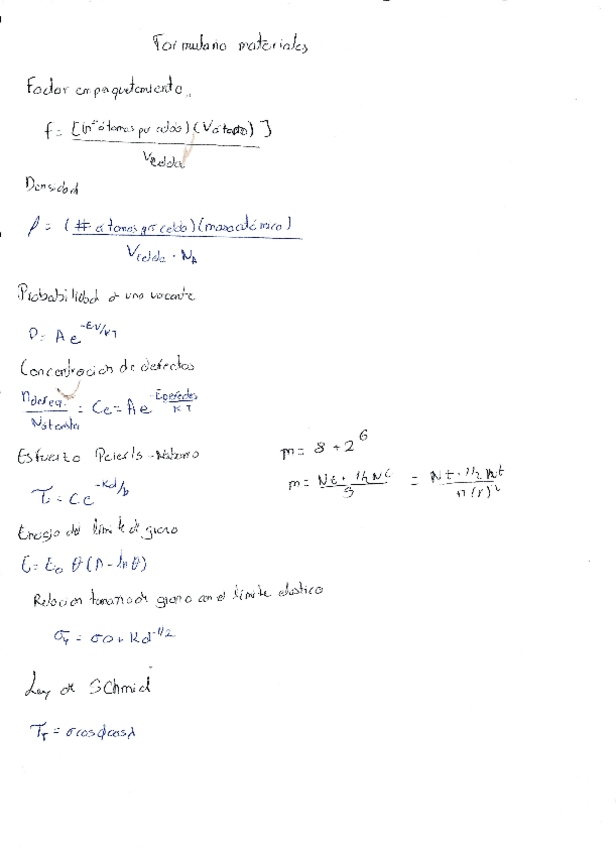 Formulario materiales
Factor empaquetamiento
f = [(nº átomos por celda)(Vátomo)]
Vcelda
Densidad
ρ = (# átomos por celda)(masa atómica)
Vcelda · NA
Probabilidad d una vacante
P = A e^-EV/KT
Concentracion de defectos
= Ce = A e
KT
Esfuerzo Peierls - Nabarro
τ = Ce^-Kd/b
m = 8 + 2^G
m =
=
Energia del limite d grano
E = E0 θ (A - ln θ)
Relacion tamaño de grano con el limite elastico
σy = σ0 + Kd^-1/2
Ley de SChmid
τr = σ cosϕ cosλ